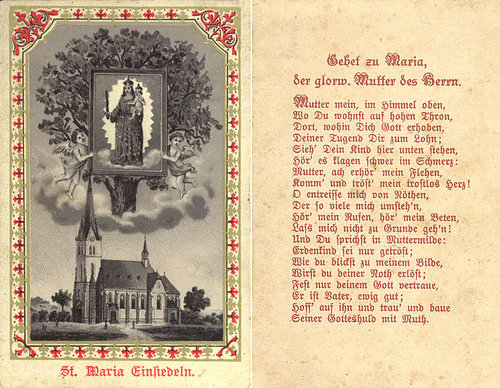 St. Maria Einsiedeln.
Gebet zu Maria,
der glorw. Mutter des Herrn.
Mutter mein, im Himmel oben,
Wo Du wohnst auf hohen Thron,
Dort, wohin Dich Gott erhoben,
Deiner Tugend Dir zum Lohn;
Sieh' Dein Kind hier unten stehen,
Hör' es klagen schwer im Schmerz:
Mutter, ach erhör' mein Flehen,
Komm' und tröst' mein trostlos Herz!
O entreisse mich von Nöthen,
Der so viele mich umsteh'n,
Hör' mein Rufen, hör' mein Beten,
Lass mich nicht zu Grunde geh'n!
Und Du sprichst in Muttermilde:
Erdenkind sei nur getröst;
Wie du blickst zu meinem Bilde,
Wirst du deiner Noth erlöst;
Fest nur deinem Gott vertraue,
Er ist Vater, ewig gut;
Hoff' auf ihn und trau' und baue
Seiner Gotteshuld mit Muth.